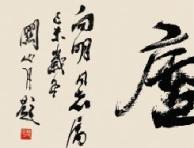 向明同志属
己未歲冬
關山月題